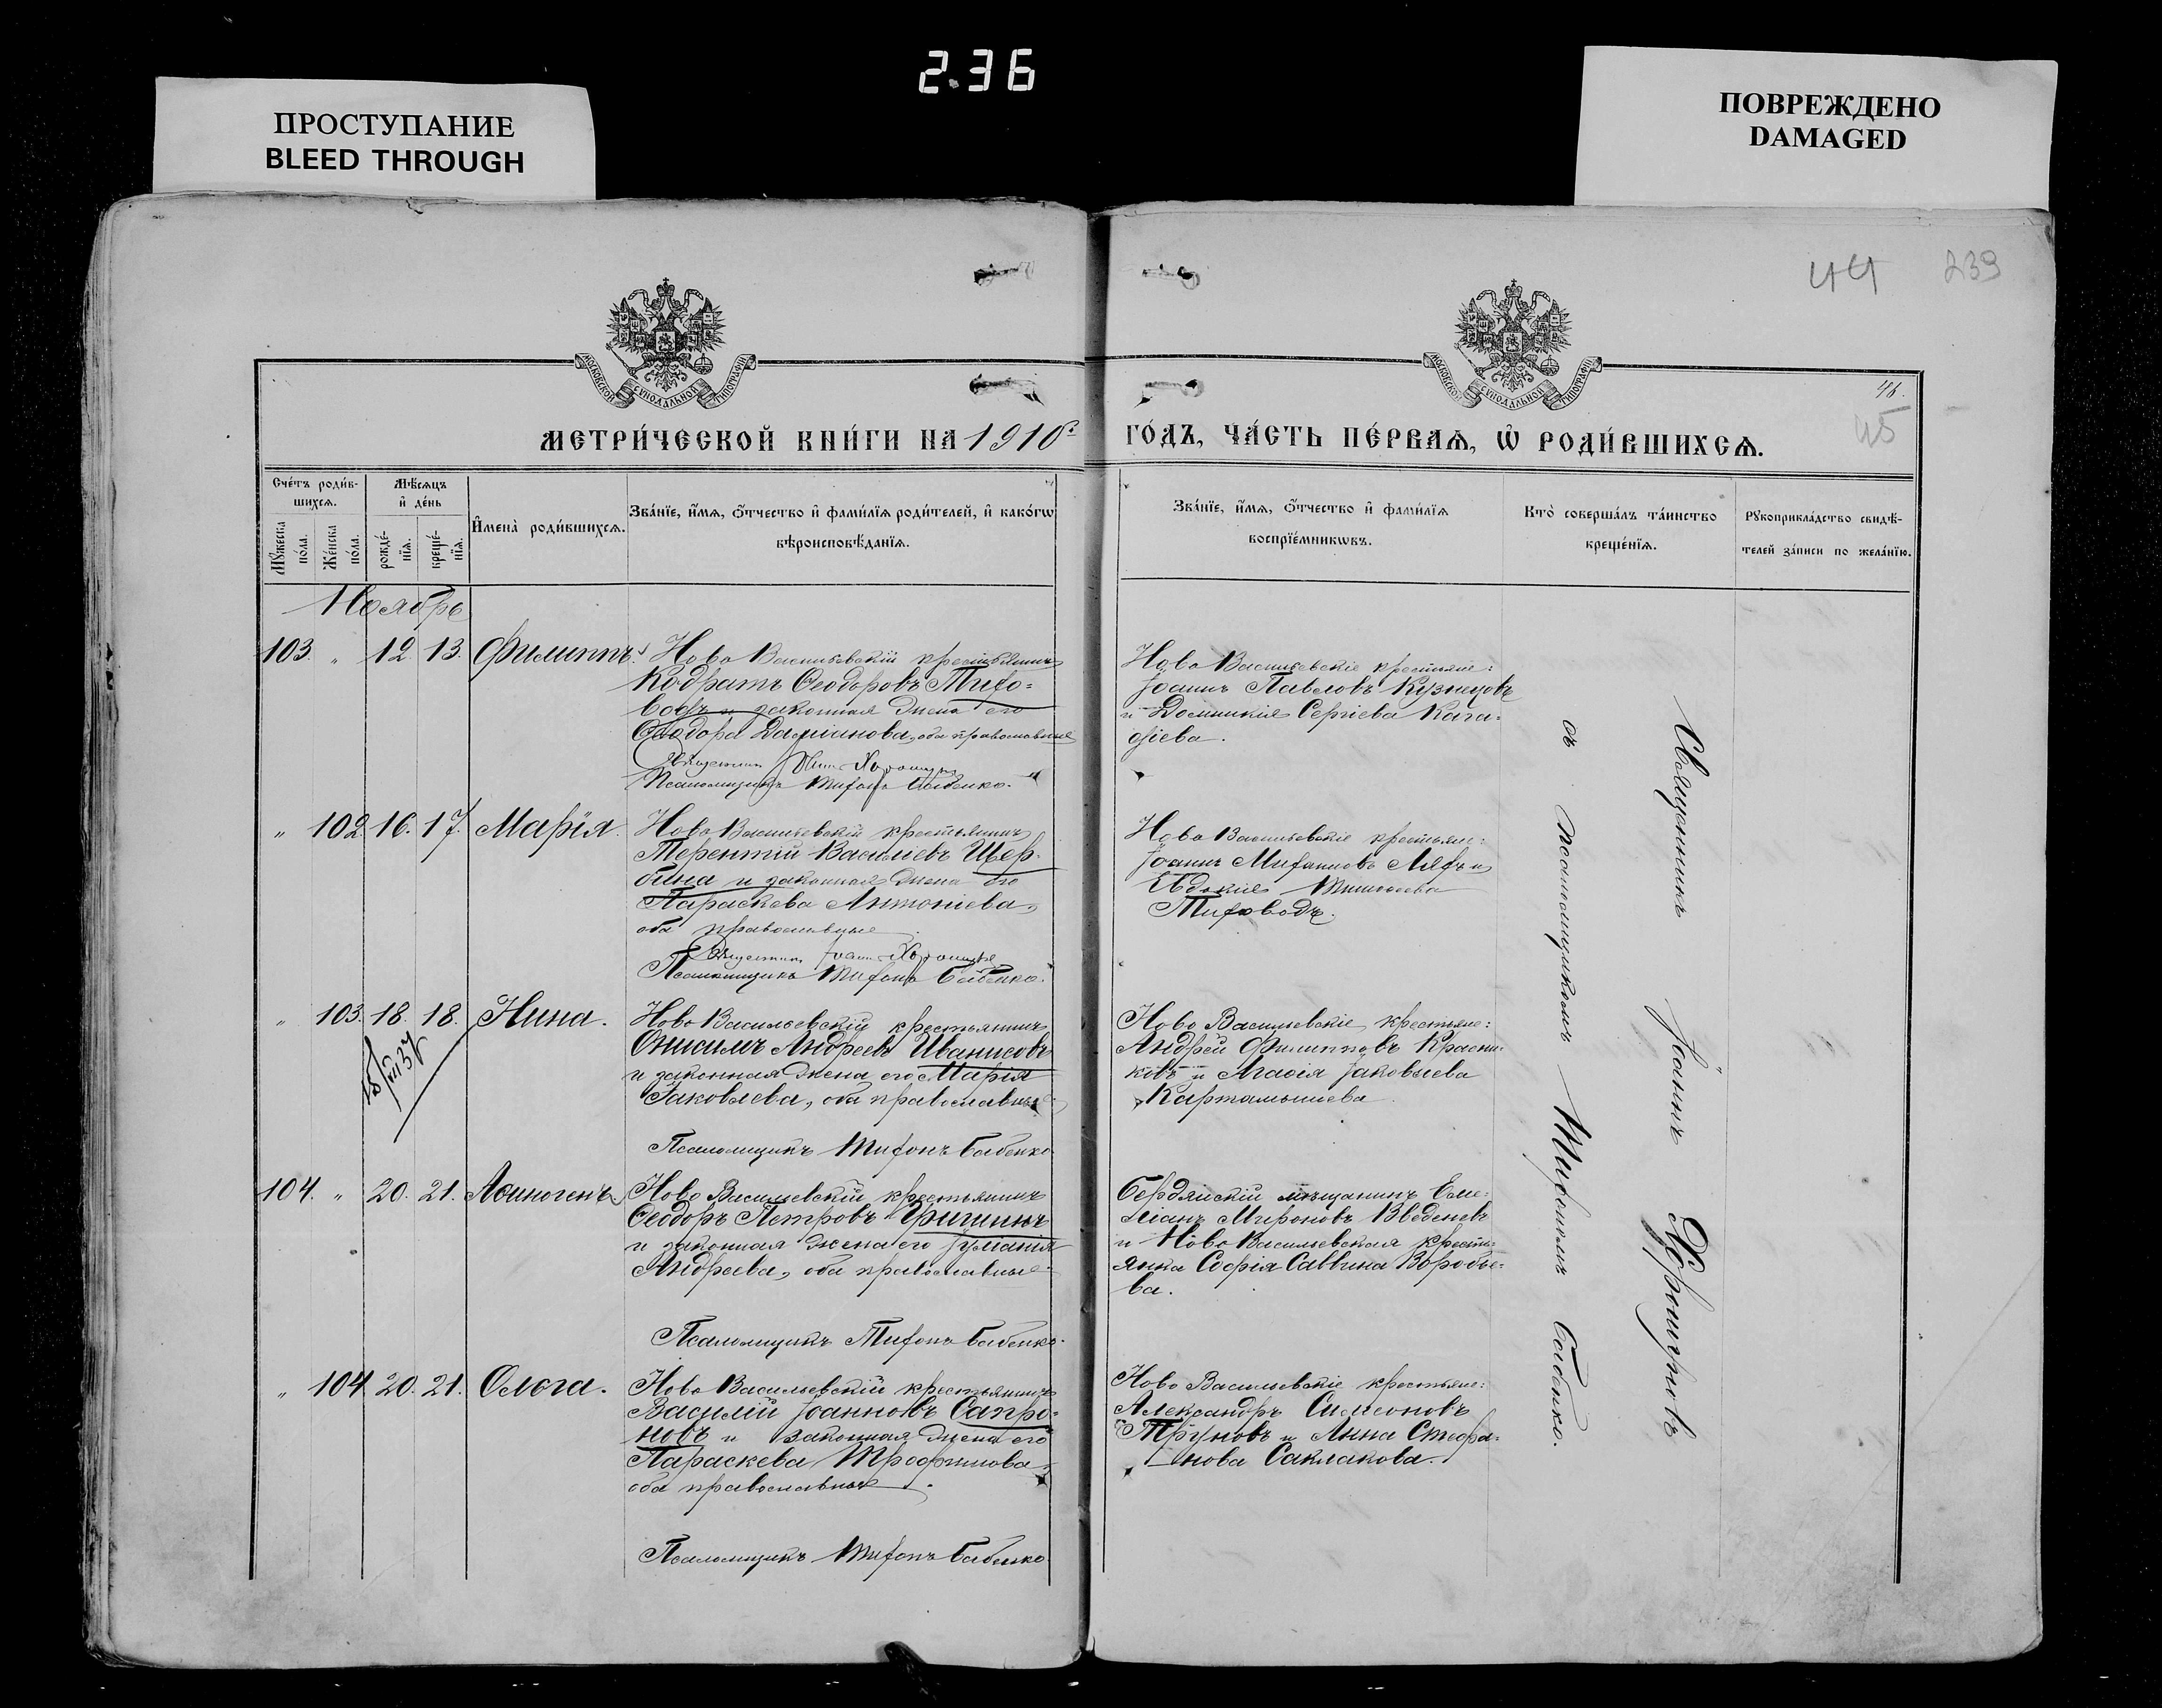 2.36
ПРОСТУПАНИЕ
BLEED THROUGH
ПОВРЕЖДЕНО
DAMAGED
44 239
МОСКОВСКОЙ СѴНОДАЛЬНОЙ ТИПОГРАФІИ
МОСКОВСКОЙ СѴНОДАЛЬНОЙ ТИПОГРАФІИ
46.
45
МЕТРИ́ЧЕСКОЙ КНИ́ГИ НА 1910 г.
ГО́ДЪ, ЧА́СТЬ ПЕ́РВАѦ, Ѡ РОДИ́ВШИХСѦ.
Сче́тъ роди́в-
шихсѧ.
Мѹ́жеска по́ла.
Же́нска по́ла.
Мѣ́сѧцъ
и҆ де́нь
рожде́-
нїѧ.
креще́-
нїѧ.
И҆мена̀ роди́вшихсѧ.
Зва́нїе, и҆́мѧ, ѻ҆́тчество и҆ фами́лїѧ роди́телей, и҆ како́гѡ
вѣроисповѣ́данїѧ.
Зва́нїе, и҆́мѧ, ѻ҆́тчество и҆ фами́лїѧ
воспрїе́мникѡвъ.
Кто̀ соверша́лъ та́инство
креще́нїѧ.
Рѹкоприкла́дство свидѣ́-
телей за́писи по жела́нїю.
Ноябрь
103. " 12. 13. Филиппъ.
Ново Васильевскій крестьянинъ
Кодратъ Ѳеодоровъ Тихо-
водъ и законная жена его
Ѳеодора Даміанова, оба православные
Псаломщикъ Тихонъ Бабенко.
Ново Васильевскіе крестьяне:
Іоаннъ Павловъ Кузнецовъ
и Домникія Сергіева Кара-
" 102. 16. 17. Марія.
Ново Васильевскій крестьянинъ
Терентій Василіевъ Щер-
бина и законная жена его
Параскева Антоніева,
оба православные
Псаломщикъ Тихонъ Бабенко.
Ново Васильевскіе крестьяне:
Іоаннъ
Евдокія
Тиховодъ.
" 103. 18. 18. Нина.
Ново Васильевскій крестьянинъ
Онисимъ Андреевъ Иванисовъ
и законная жена его Марія
Іаковлева, оба православные
Псаломщикъ Тихонъ Бабенко
Ново Васильевскіе крестьяне:
Андрей Филипповъ Красни-
ковъ и Агаѳія Іаковлева
Картамышева.
104. " 20. 21. Аѳиногенъ
Ново Васильевскій крестьянинъ
Ѳеодоръ Петровъ Гришинъ
и законная жена его Іуліанія
Андреева, оба православные
Псаломщикъ Тихонъ Бабенко.
Бердянскій мѣщанинъ Еме-
ліанъ Мироновъ Введеневъ
и Ново Васильевская кресть-
янка Софія Саввина Воробье-
ва.
" 104. 20. 21. Ольга.
Ново Васильевскій крестьянинъ
Василій Іоанновъ Сапро-
новъ и законная жена его
Параскева Трофимова
оба православные.
Псаломщикъ Тихонъ Бабенко
Ново Васильевскіе крестьяне:
Александръ Симеоновъ
Труновъ и Анна Стефа-
нова Саклакова.
Священникъ Іоаннъ
съ псаломщикомъ Тихономъ Бабенко.